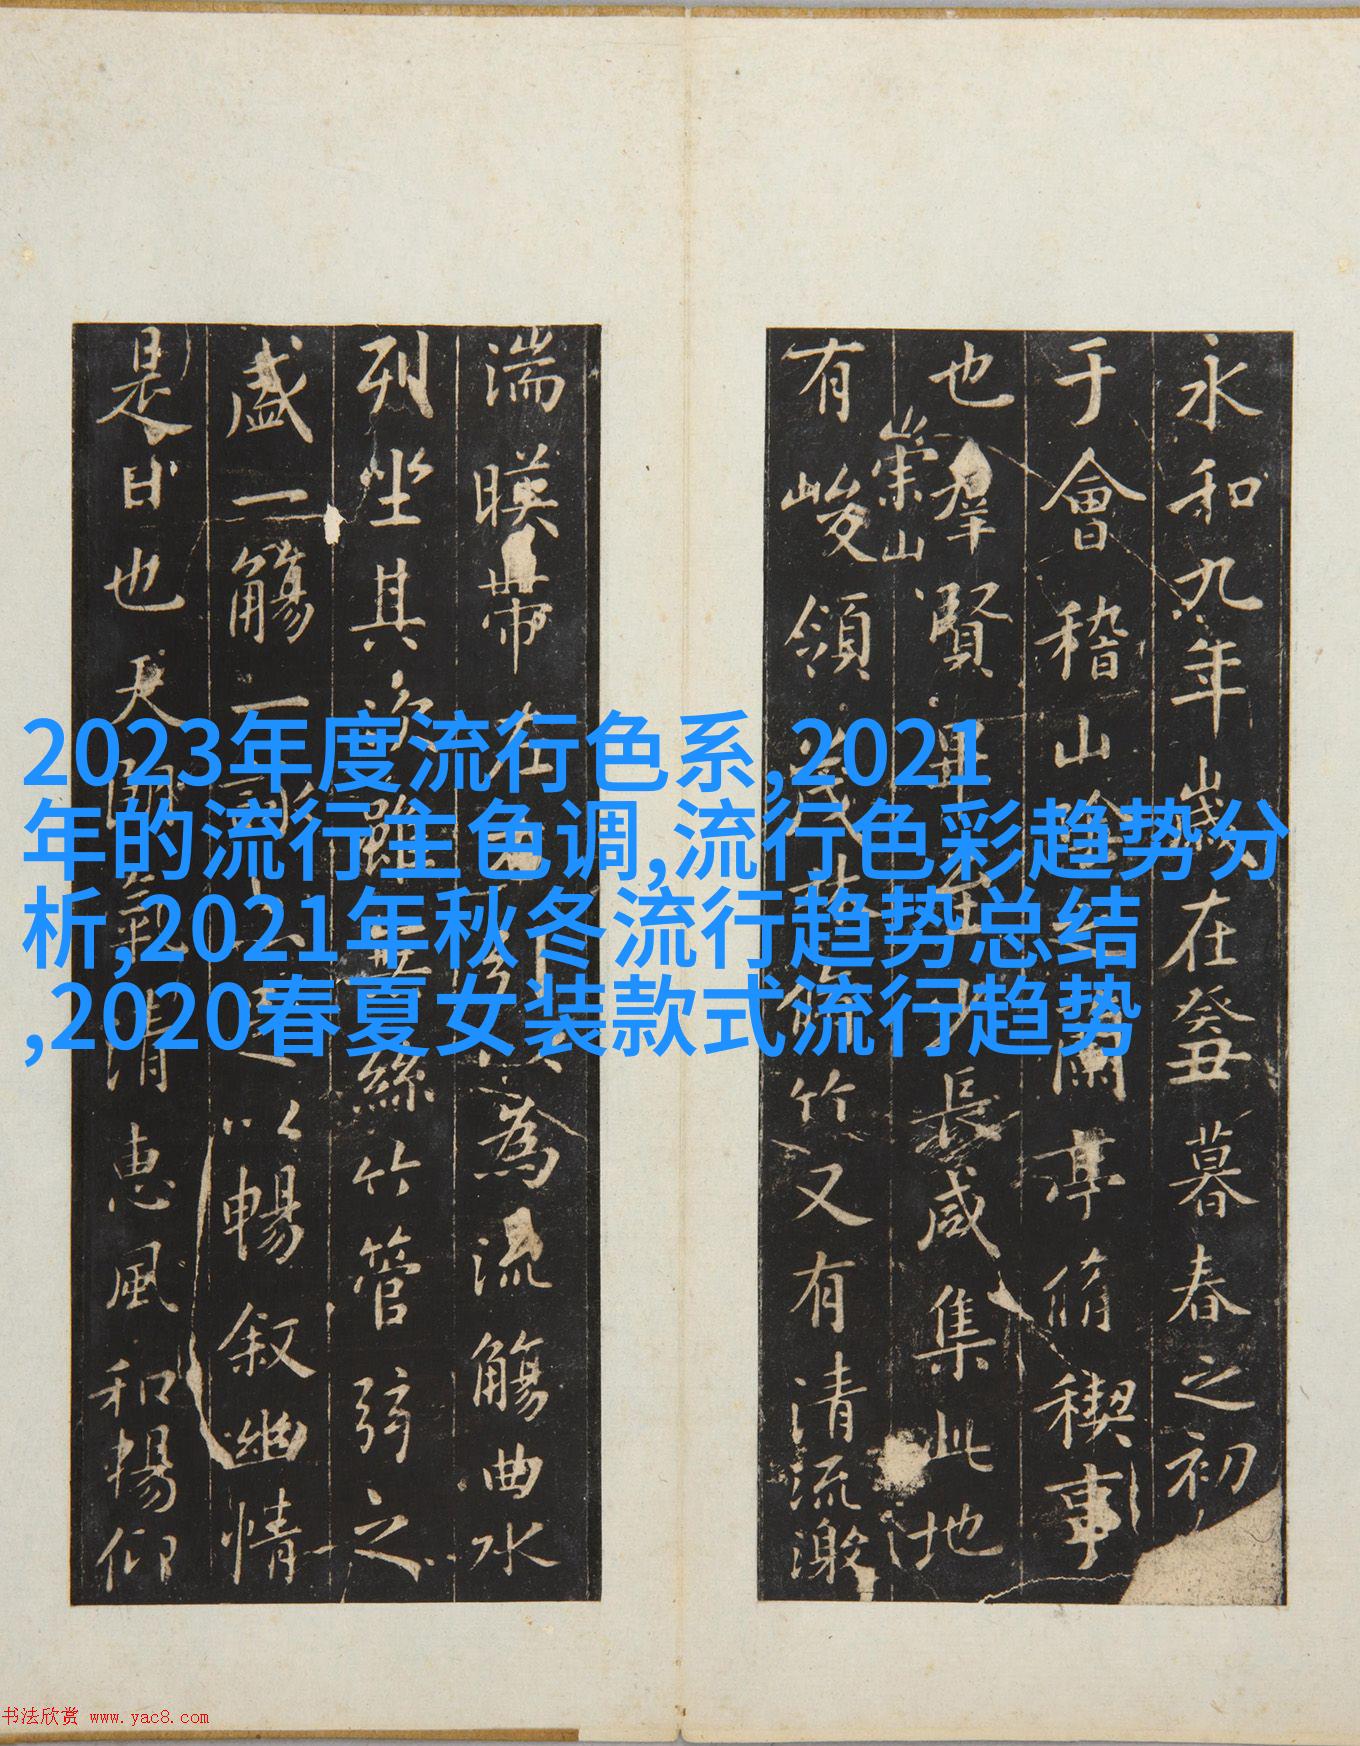 2023年度流行色系,2021
年的流行主色调,流行色彩趋势分
析,2021年秋冬流行趋势总结
,2020春夏女装款式流行趋势
永和九年歲在癸丑暮春之初
于會稽山陰蘭亭脩禊事
也羣賢畢至少長咸集此地
崇山
有峻領茂林脩竹又有清流激
湍暎帶左引以為流觴曲水
列坐其次雖無絲竹管弦之
盛一觴一詠足以暢敘幽情
是日也天朗氣清惠風和暢仰
书法欣赏 www.yac8.com